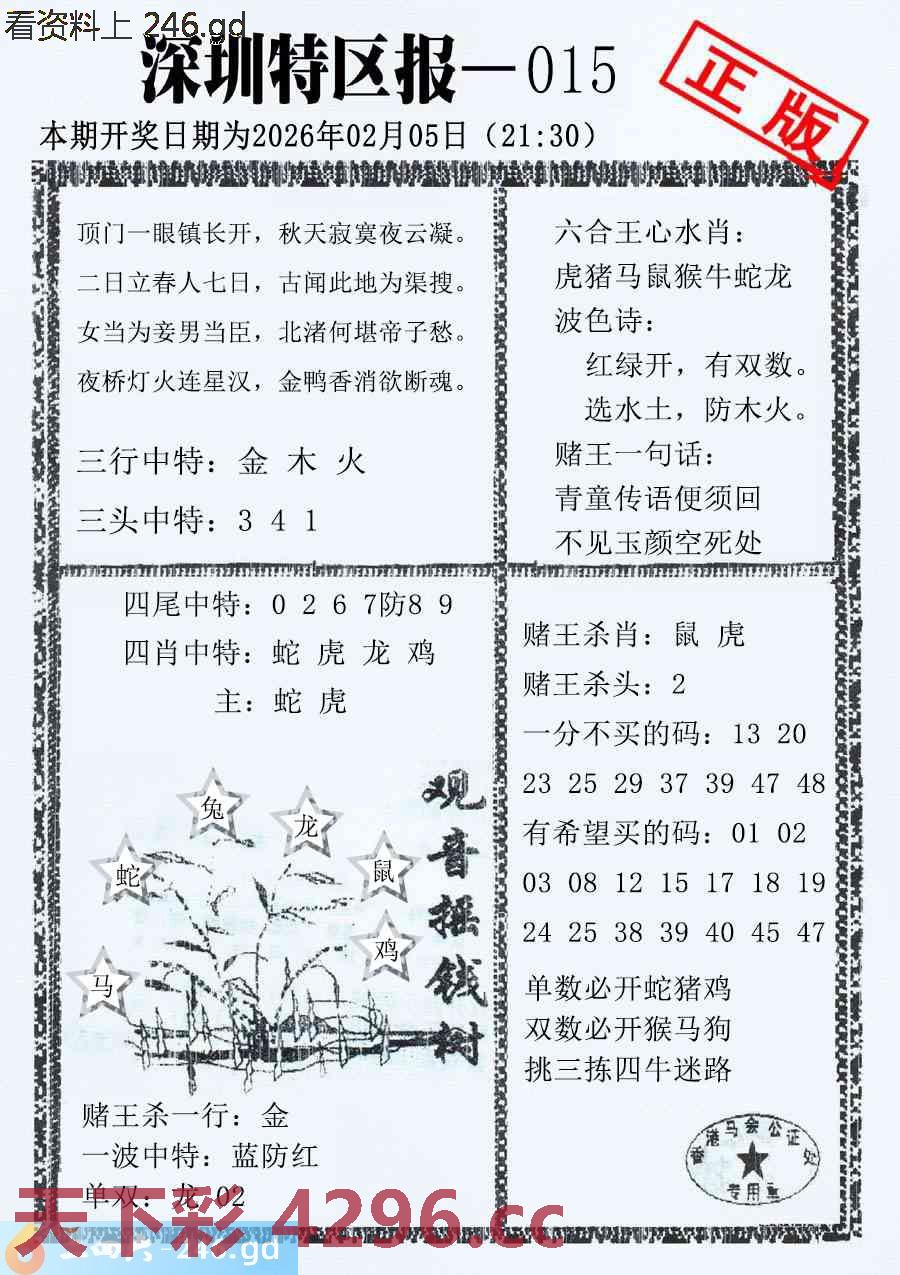 看资料上 246.gd
深圳特区报—015
正版
本期开奖日期为2026年02月05日（21:30）
顶门一眼镇长开，秋天寂寞夜云凝。
二日立春人七日，古闻此地为渠搜。
女当为妾男当臣，北渚何堪帝子愁。
夜桥灯火连星汉，金鸭香消欲断魂。
三行中特：金 木 火
三头中特：3 4 1
六合王心水肖：
虎猪马鼠猴牛蛇龙
波色诗：
红绿开，有双数。
选水土，防木火。
赌王一句话：
青童传语便须回
不见玉颜空死处
四尾中特：0 2 6 7防8 9
四肖中特：蛇 虎 龙 鸡
主：蛇 虎
兔
龙
蛇
鼠
鸡
马
观音摇钱树
赌王杀一行：金
一波中特：蓝防红
单双：龙 02
赌王杀肖：鼠 虎
赌王杀头：2
一分不买的码：13 20
23 25 29 37 39 47 48
有希望买的码：01 02
03 08 12 15 17 18 19
24 25 38 39 40 45 47
单数必开蛇猪鸡
双数必开猴马狗
挑三拣四牛迷路
香港马会公证处
专用章
天下彩 4296.cc
246.gd